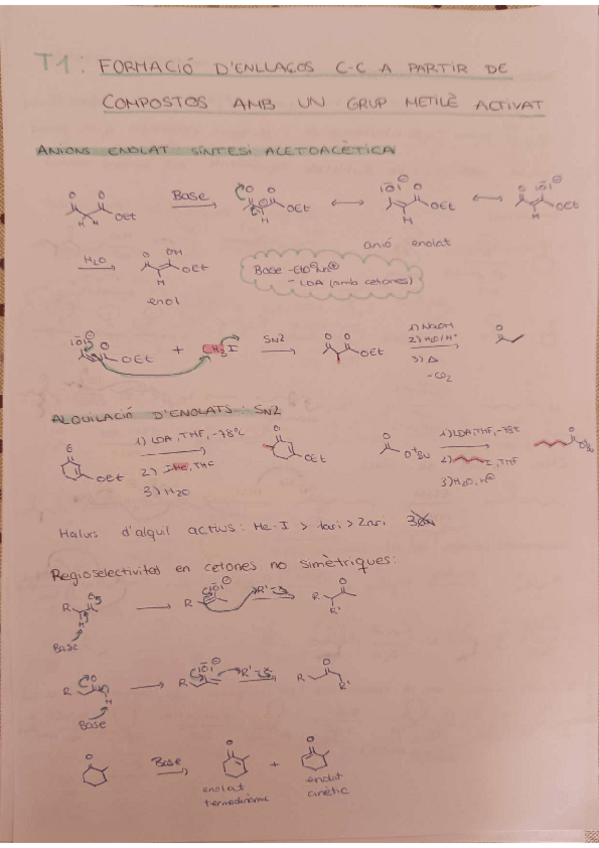 T1: FORMACIÓ D'ENLLAÇOS C-C A PARTIR DE
COMPOSTOS AMB UN GRUP METILÈ ACTIVAT
ANIONS ENOLAT SÍNTESI ACETOACÈTICA
Base
OEt OEt OEt OEt
anió enolat
H₂O
OH
OEt
enol
Base -EtO⁻Na⁺
- LDA (amb cetones)
OEt + CH₃I SN2 OEt
1) NaOH
2) H₂O/H⁺
3) Δ
-CO₂
ALQUILACIÓ D'ENOLATS: SN2
1) LDA, THF, -78ºC
2) IMe, THF
3) H₂O
OEt OEt
OtBu
1) LDA, THF, -78ºC
2) I, THF
3) H₂O, H⁺
OtBu
Halurs d'alquil actius: Me-I > 1ari > 2nari
Regioselectivitat en cetones no simètriques:
R H Base
R R'-X R R'
R H Base
R R'-X R R'
O Base O + O
enolat termodinàmic
enolat cinètic